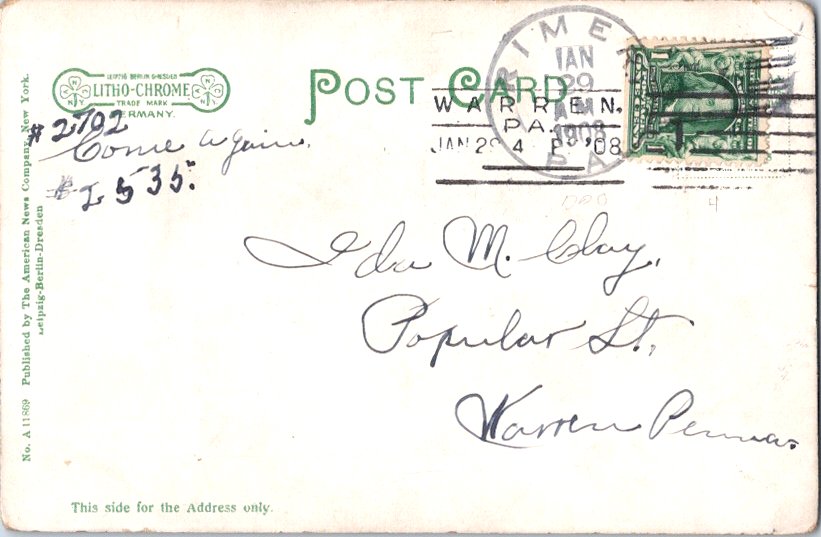 LEIPZIG BERLIN DRESDEN
LITHO-CHROME
TRADE MARK
GERMANY.
N Y
N Y
POST CARD.
JAN
29
AM
1908
PA
WARREN.
PA.
JAN 29 4 P '08
#2702
Come again.
# 2535.
Ida M. Clay,
Popular St,
Warren Penna.
1000
4
No. A 11869 Published by The American News Company, New York.
Leipzig-Berlin-Dresden
This side for the Address only.